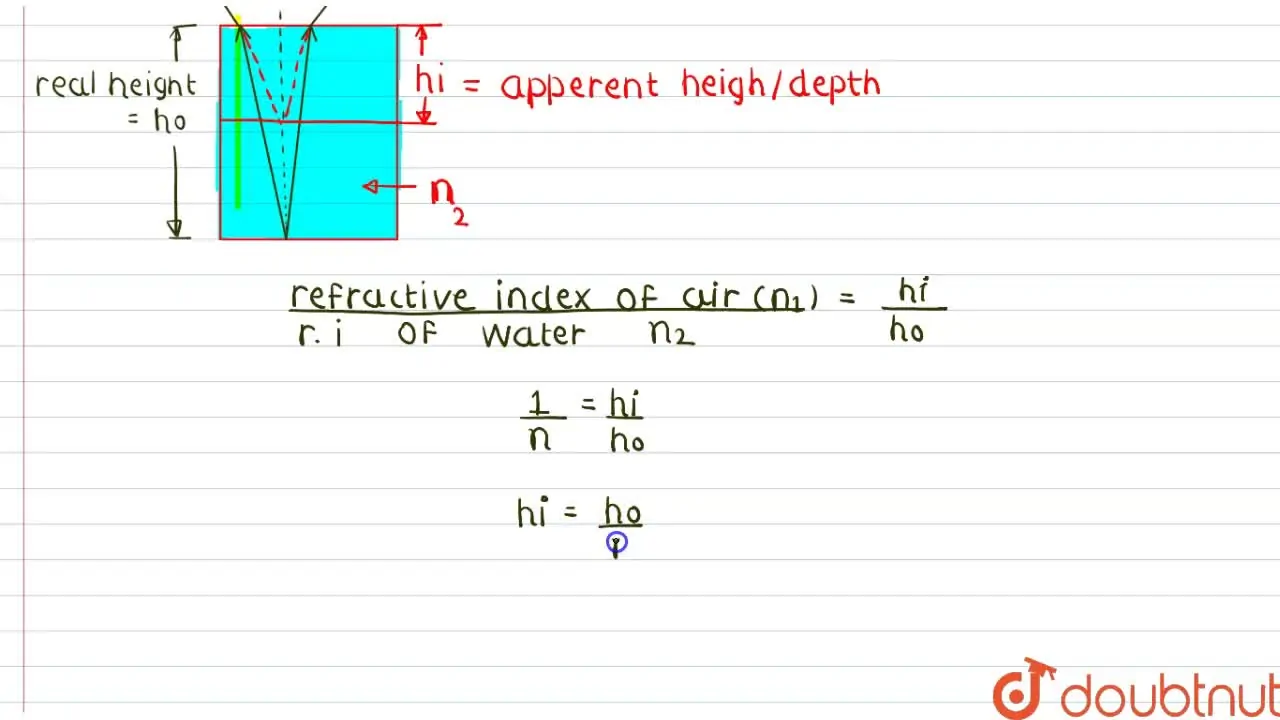 real heignt
= ho
hi = apperent heigh/depth
n2
refractive index of air (n1) = hi
r.i of water n2 ho
1 = hi
n ho
hi = ho
doubtnut